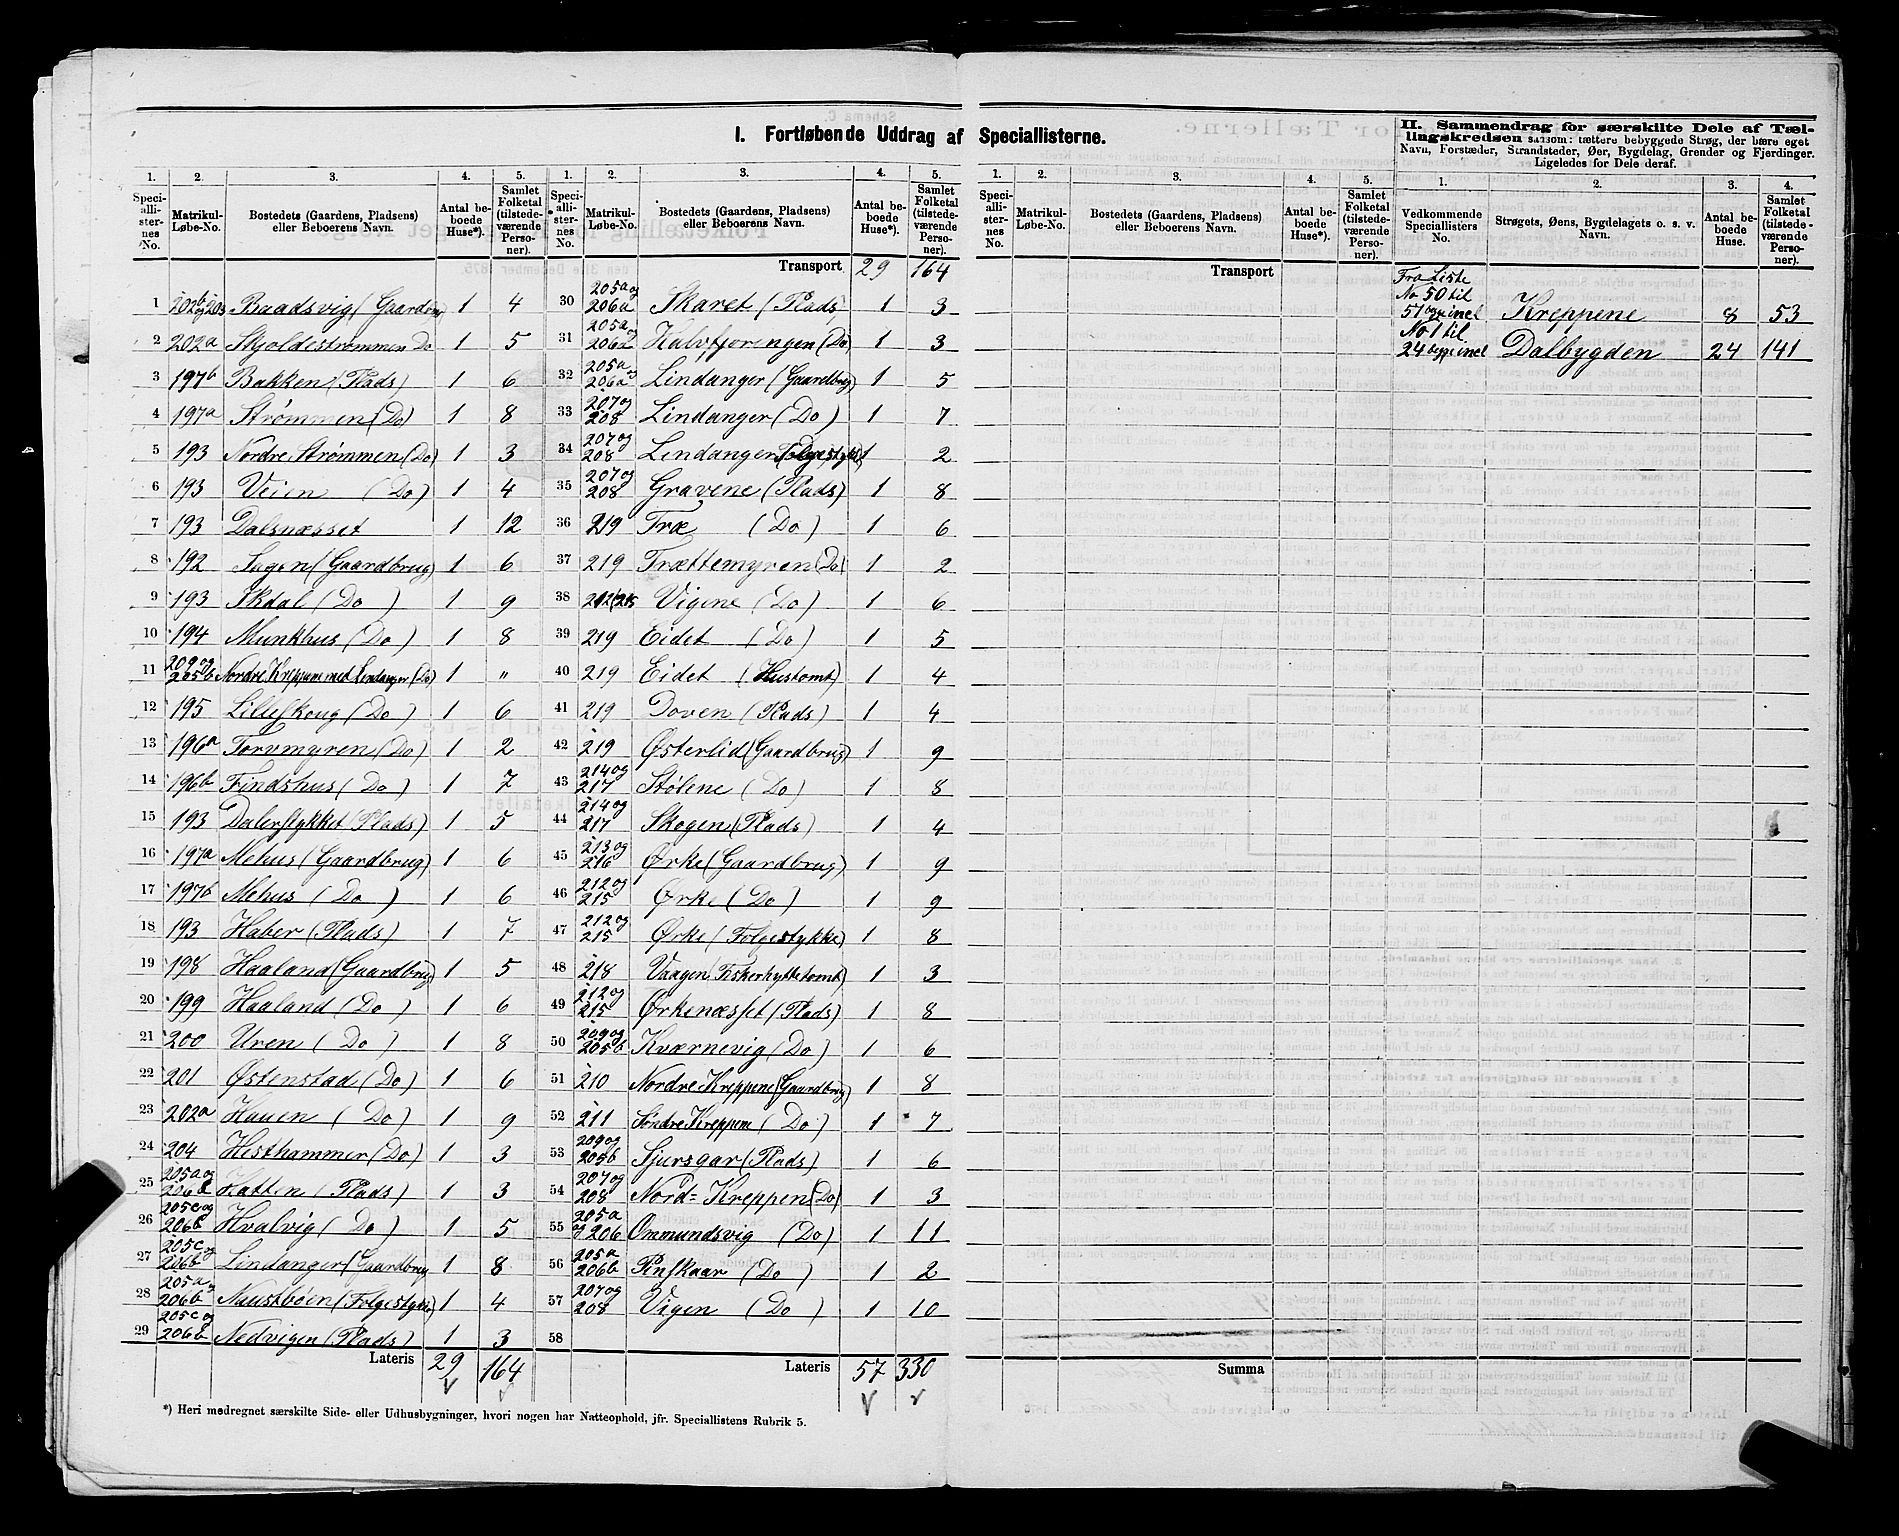 I. Fortløbende Uddrag af Speciallisterne.
II. Sammendrag for særskilte Dele af Tællingskredsen saasom: tættere bebyggede Strøg, der bære eget
Navn, Forstæder, Strandsteder, Øer, Bygdelag, Grender og Fjerdinger.
Ligeledes for Dele deraf.
1. 2. 3. 4. 5. 1. 2. 3. 4. 5. 1. 2. 3. 4. 5. 1. 2. 3. 4.
Speciallisternes No. Matrikul-Løbe-No. Bostedets (Gaardens, Pladsens) eller Beboerens Navn. Antal beboede Huse*). Samlet Folketal (tilstedeværende Personer).
Speciallisternes No. Matrikul-Løbe-No. Bostedets (Gaardens, Pladsens) eller Beboerens Navn. Antal beboede Huse*). Samlet Folketal (tilstedeværende Personer).
Speciallisternes No. Matrikul-Løbe-No. Bostedets (Gaardens, Pladsens) eller Beboerens Navn. Antal beboede Huse*). Samlet Folketal (tilstedeværende Personer).
Vedkommende Speciallisters No. Strøgets, Øens, Bygdelagets o. s. v. Navn. Antal beboede Huse. Samlet Folketal (tilstedeværende Personer).
1 202b og 203 Baadsvig (Gaardbrug) 1 4
2 202a Skjoldestrømmen Do 1 5
3 197b Bakken (Plads) 1 6
4 197a Strømmen (Do) 1 8
5 193 Nordre Strømmen (Do) 1 3
6 193 Veien (Do) 1 4
7 193 Dalsnæsset 1 12
8 192 Sagen (Gaardbrug) 1 6
9 193 Skdal (Do) 1 9
10 194 Munkhus (Do) 1 8
11 209 og 205b Nordre Kreppene med Lindanger (Do) 1 "
12 195 Lilleskoug (Do) 1 6
13 196a Torvmyren (Do) 1 2
14 196b Findshus (Do) 1 7
15 193 Dalerstykket (Plads) 1 5
16 197a Mehus (Gaardbrug) 1 6
17 197b Mehus (Do) 1 6
18 193 Haber (Plads) 1 7
19 198 Haaland (Gaardbrug) 1 5
20 199 Haaland (Do) 1 6
21 200 Uren (Do) 1 8
22 201 Østenstad (Do) 1 6
23 202a Hauen (Do) 1 9
24 204 Hesthammer (Do) 1 3
25 205a og Hatten (Plads) 1 3
26 205c og 206b Hvalvig (Do) 1 5
27 205c og 206b Lindanger (Gaardbrug 1 8
28 205a og 206b Naustbøen (Folgestykke) 1 4
29 205c og 206b Nedvigen (Plads) 1 3
Lateris 29 164
Transport 29 164
30 205a og 206a Skaret (Plads) 1 3
31 205a og 206a Kalvtjoringen (Do) 1 3
32 205a og 206a Lindanger (Gaardbrug) 1 5
33 207 og 208 Lindanger (Do) 1 7
34 207 og 208 Lindanger (Folgestykke) 1 2
35 207 og 208 Gravene (Plads) 1 8
36 219 Træ (Do) 1 6
37 219 Trættemyren (Do) 1 2
38 212 215 Vigene (Do) 1 6
39 219 Eidet (Do) 1 5
40 219 Eidet (Hustomt) 1 4
41 219 Doven (Plads) 1 4
42 219 Østerlid (Gaardbrug) 1 9
43 214 og 217 Stølene (Do) 1 8
44 214 og 217 Skogen (Plads) 1 4
45 213 og 216 Ørke (Gaardbrug) 1 9
46 212 og 215 Ørke (Do) 1 9
47 212 og 215 Ørke (Folgestykke) 1 8
48 218 Vaagen Fiskerhyttetomt) 1 3
49 212 og 215 Ørkenæsset (Plads) 1 8
50 209 og 205b Kværnevig (Do) 1 6
51 210 Nordre Kreppene (Gaardbrug) 1 8
52 211 Søndre Kreppene (Do) 1 7
53 209 og 205b Sjursgar (Plads) 1 6
54 207 og 208 Nord=Kreppen (Do) 1 3
55 205a og 206 Ommundsvig (Do) 1 11
56 205a 206b Pinskaar (Do) 1 2
57 207 og 208 Vigen (Do) 1 10
58
Lateris 57 330
Transport
Summa
Fra Liste
No 50 til
57 begge incl Kreppene 8 53
No 1 til
24 begge incl Dalbygden 24 141
*) Heri medregnet særskilte Side- eller Udhusbygninger, hvori nogen har Natteophold, jfr. Speciallistens Rubrik 5.